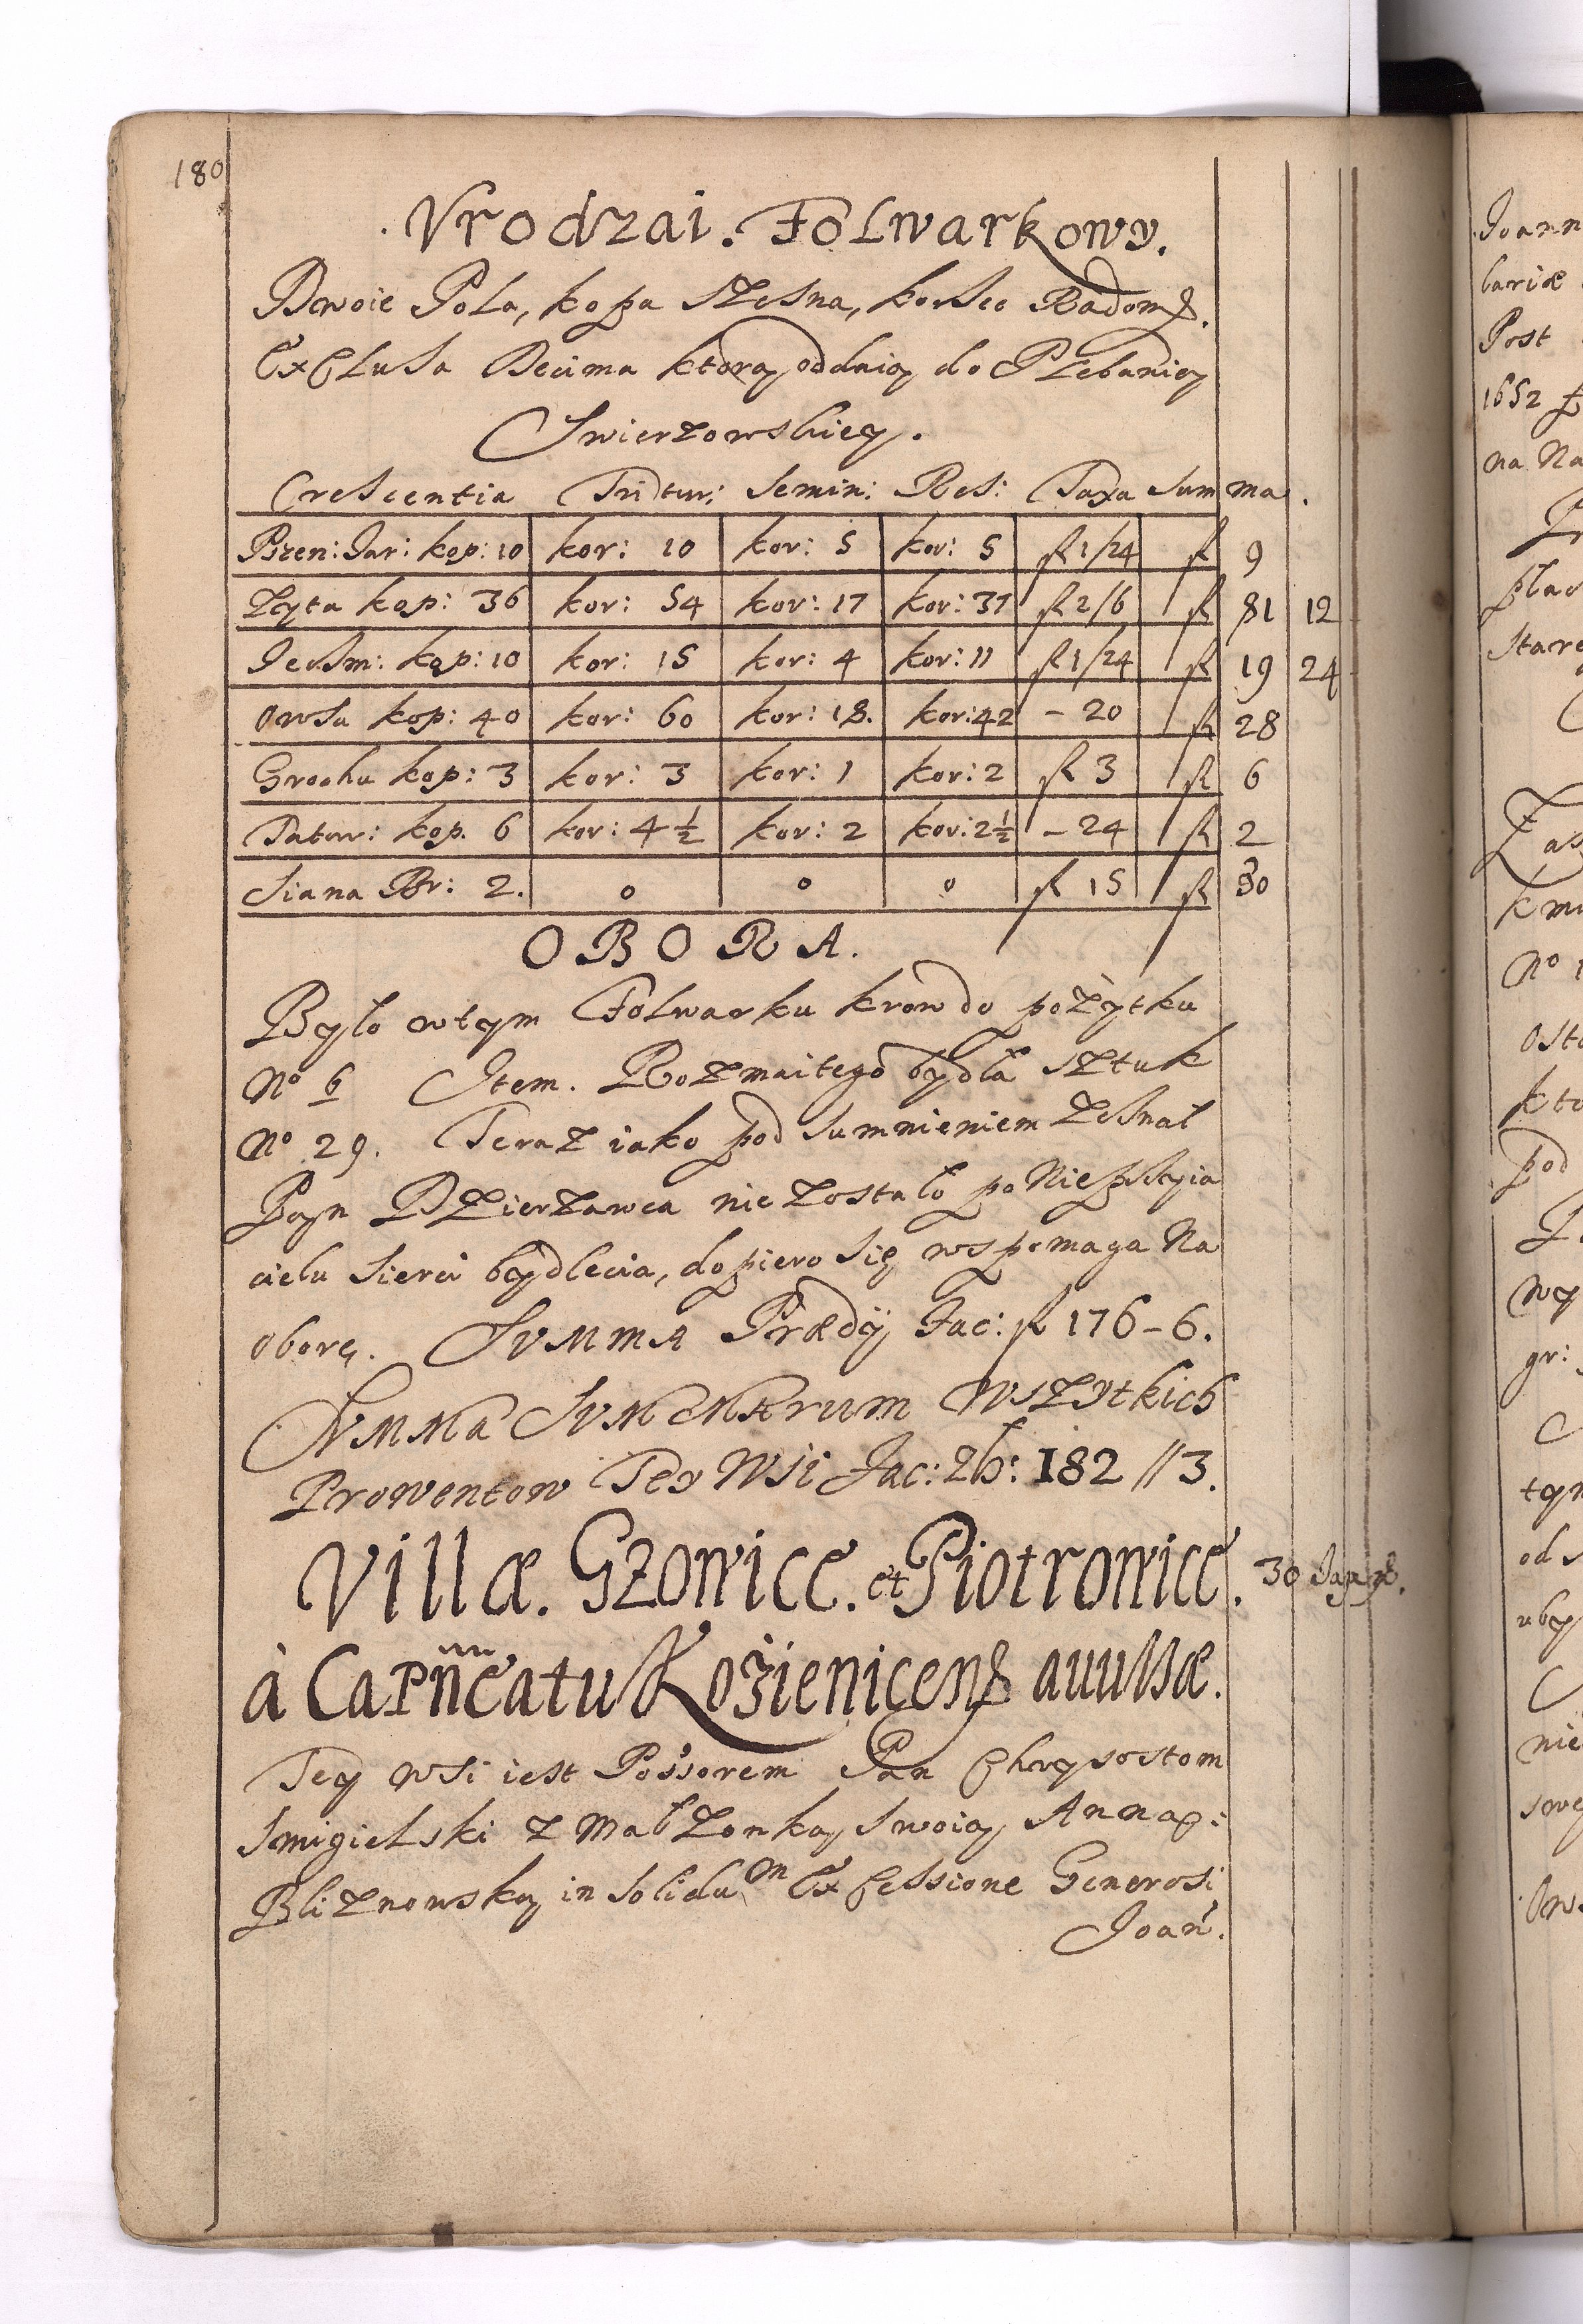 180
Vrodzai. Folwarkowy.
Dwoie Pola, kopa szesna, korsec Radoms.
Exclusa Decima ktorą oddaią do Plebaniey
Swierzowskiey.
Crescentia Tridtur: Semin: Res: Taxa Summa.
Pszen: Jar: kop: 10 kor: 10 kor: 5 kor: 5 fl 1/24 fl 9
Zyta kop: 36 kor: 54 kor: 17 kor: 37 fl 2/6 fl 81 12
Jecsm: kop: 10 kor: 15 kor: 4 kor: 11 fl 1/24 fl 19 24
Owsa kop: 40 kor: 60 kor: 18. kor: 42 - 20 fl 28
Grochu kop: 3 kor: 3 kor: 1 kor: 2 fl 3 fl 6
Tatar: kop. 6 kor: 4 ½ kor: 2 kor: 2½ - 24 fl 2
Siana Br: 2. 0 0 0 fl 15 fl 30
OBORA.
Było wtym Folwarku krow do pożytku
No 6 Item. Rozmaitego bydła sztuk
No 29. Teraz iako pod sumnieniem zesnał
Pan Dzierzawca nie zostało po Niepszyia
cielu sierci bydlecia, dopiero się wspomaga Na
oborę. SVMMA Prædÿ Fac: fl 176-6.
SVMMa SVMMArum wszytkich
Prowentow Tey Wsi Fac: Zł: 182 // 3.
Villæ. Gzowice. et Piotrowice.
30
à Capñeatu Kozienicens avulsæ.
Tey wsi iest Possorem Pan Chrysostom
Smigielski z Małzonką swoią Anną:
Bliznowską in solidum Ex Cessione Generosi
Joan.